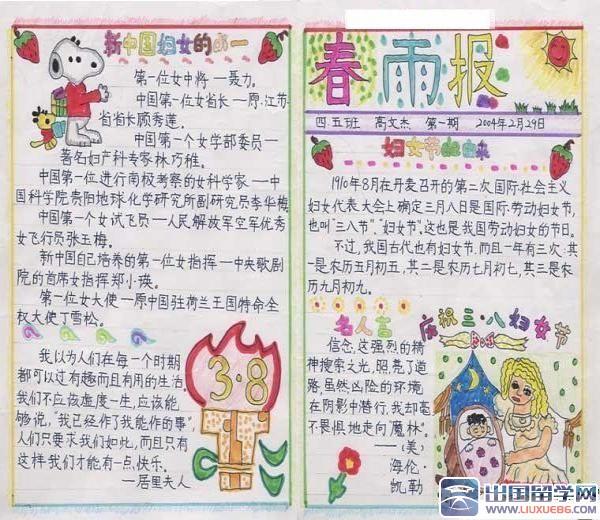 新中国妇女的第一
第一位女中将一聂力。
中国第一位女省长一原江苏
省省长顾秀莲。
中国第一个女学部委员一
著名妇产科专家林巧稚。
中国第一位进行南极考察的女科学家一中
国科学院贵阳地球化学研究所副研究员李华梅
中国第一个女试飞员一人民解放军空军优秀
女飞行员张玉梅。
新中国自己培养的第一位女指挥一中央歌剧
院的首席女指挥郑小瑛。
第一位女大使一原中国驻荷兰王国特命全
权大使丁雪松。
我以为人们在每一个时期
都可以过有趣而且有用的生活。
我们不应该虚度一生,应该能
够说,"我已经作了我能作的事",
人们只要求我们如此,而且只有
这样我们才能有一点快乐。
一居里夫人
3·8
春雨报
四.五班 高文杰 第一期 2004年2月29日
妇女节的由来
1910年8月在丹麦召开的第二次国际社会主义
妇女代表大会上确定三月八日是国际劳动妇女节,
也叫"三八节"、"妇女节"。这也是我国劳动妇女的节日。
不过,我国古代也有妇女节,而且一年有三次:其
一是农历五月初五,其二是农历七月初七,其三是农
历九月初九。
名人言
信念,这强烈的精
神搜索之光,照亮了道
路,虽然凶险的环境
在阴影中潜行,我却毫
不畏惧地走向魔林"。
一(美)
海伦·
凯勒
庆祝三·八妇女节
快乐
出国留学网
WWW.LIUXUE86.COM